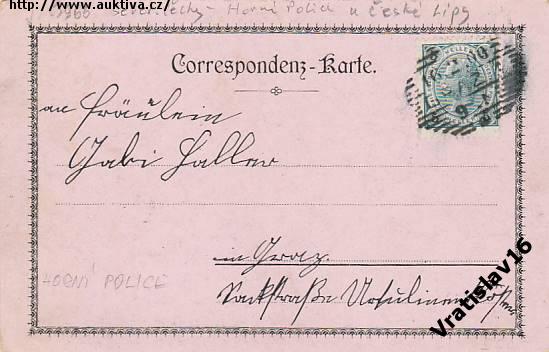 http://www.auktiva.cz/
1900 Severní Čechy - Horní Police u České Lípy
Correspondenz-Karte.
an Fräulein
Gabi Haller
in Graz.
Sackstraße Ursulinen
HORNÍ POLICE
Vratislav16